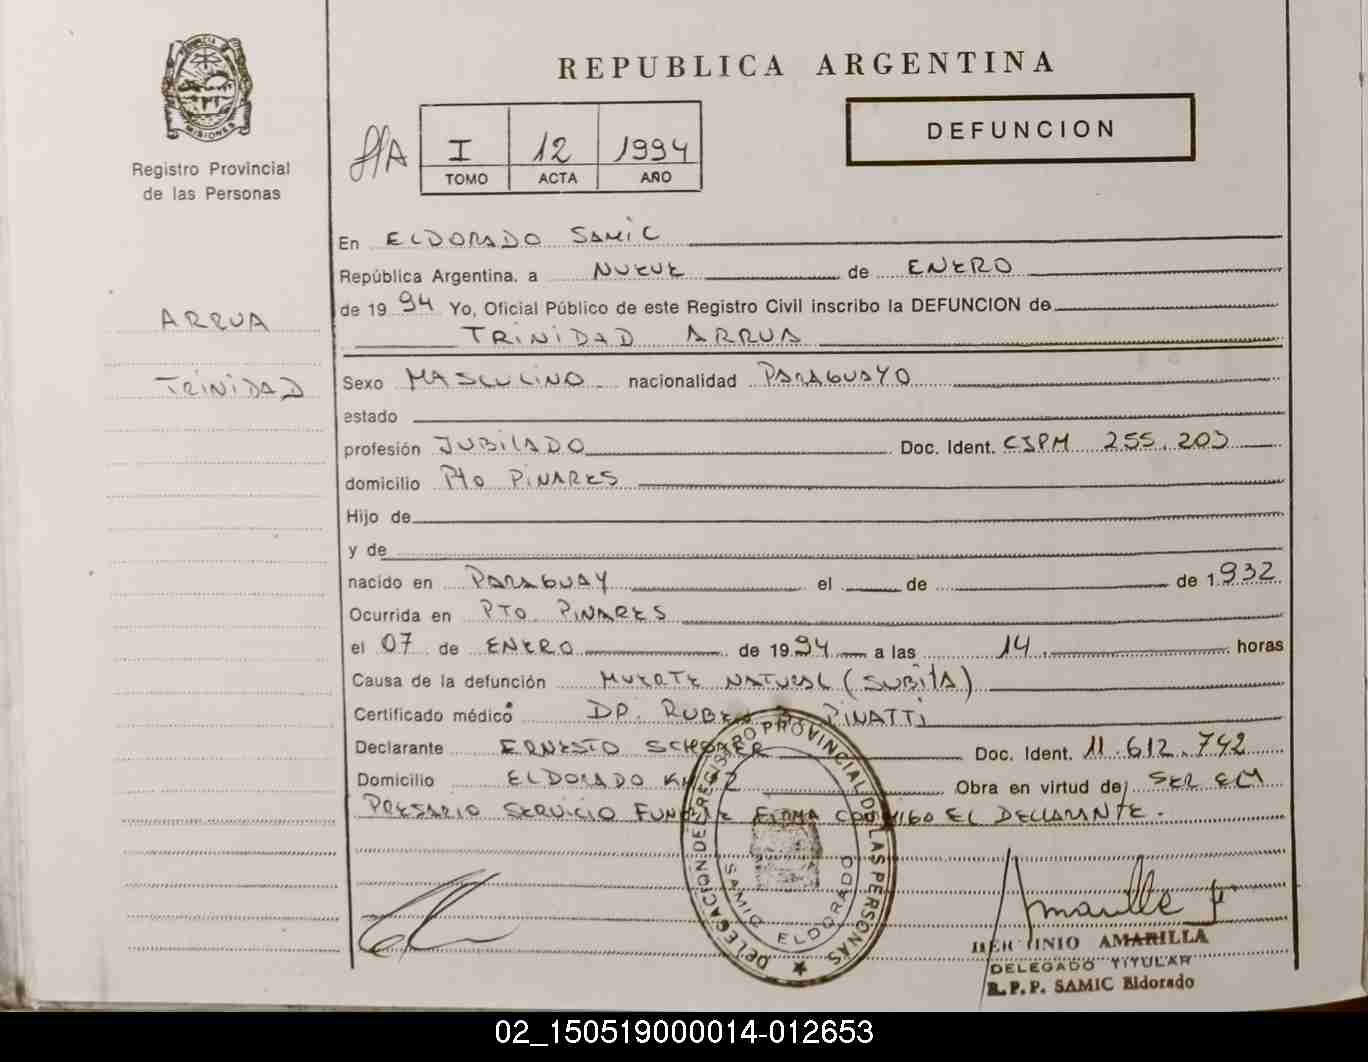 PROVINCIA DE
MISIONES
Registro Provincial
de las Personas
ARRUA
TRINIDAD
REPUBLICA ARGENTINA
I 12 1994
TOMO ACTA AÑO
DEFUNCION
En ELDORADO SAMIC
República Argentina. a NUEVE de ENERO
de 19 94 Yo, Oficial Público de este Registro Civil inscribo la DEFUNCION de
TRINIDAD ARRUA
Sexo MASCULINO nacionalidad PARAGUAYO
estado
profesión JUBILADO Doc. Ident. CIPM 255.203
domicilio Pto PINARES
Hijo de
y de
nacido en PARAGUAY el de de 1.932
Ocurrida en PTO. PINARES
el 07 de ENERO de 19 94 a las 14 horas
Causa de la defunción MUERTE NATURAL (SUBITA)
Certificado médico DR. RUBEN PINATTI
Declarante ERNESTO Doc. Ident. 11.612.742
Domicilio ELDORADO KM 2 Obra en virtud de SER EM
PRESARIO SERVICIO FUNEBRE FIRMA CONMIGO EL DECLARANTE.
DELEGACION DE REGISTRO PROVINCIAL DE LAS PERSONAS
SAMIC ELDORADO
Amarilla
AMARILLA
DELEGADO TITULAR
R.P.P. SAMIC Eldorado
02_150519000014-012653